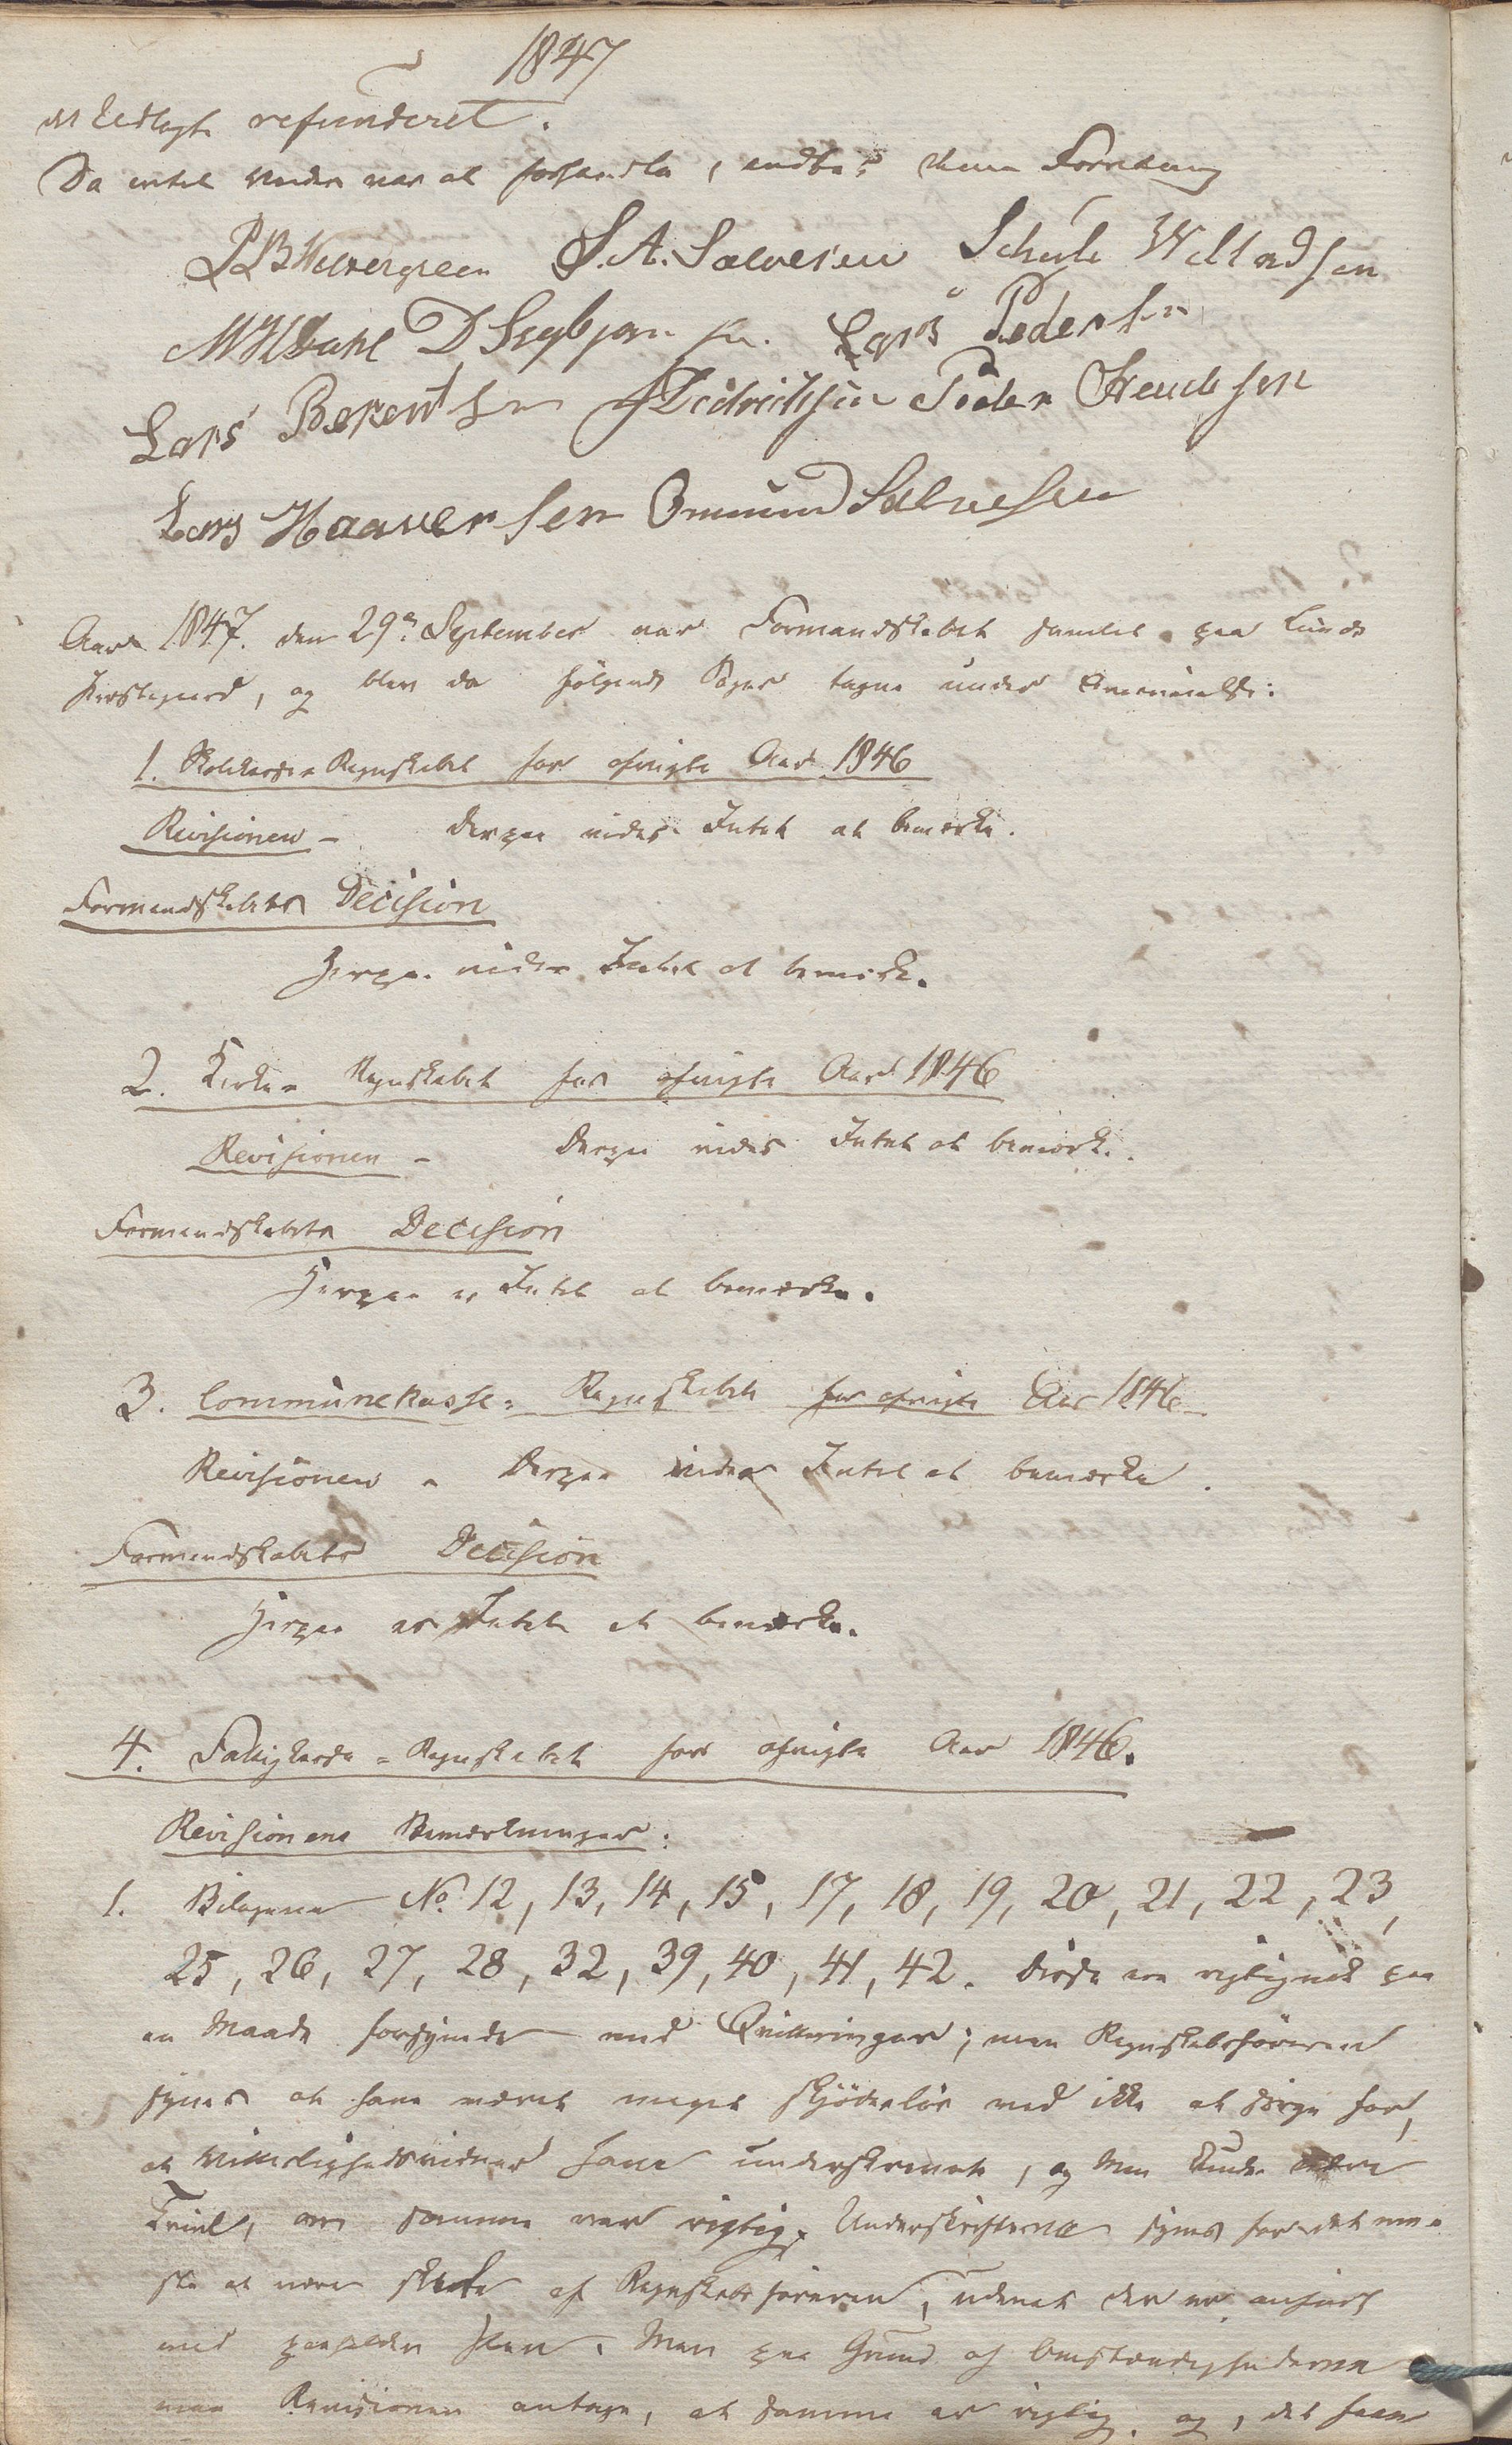 1847
det Udlagte refunderet.
Da intet videre var at forhandle, endtes denne Forretning
S. A. Salvesen Schule Willadsen
MHDahl D Seglem Lars Pedersen
Lars Berentsen Didriksen Peder Svendsen
Lars Haaversen Omund Salvesen
Aar 1847. den 29de September var Formandskabet samlet paa Lunds
Præstegaard, og blev da følgende Sager tagne under Overveielse:
1. Skolekasse-Regnskabet for afvigte Aar 1846
Revisionen - Derpaa vides Intet at bemærke.
Formandskabets Decision
Herpaa vides Intet at bemærke.
2. Kirke-Regnskabet for afvigte Aar 1846
Revisionen - Derpaa vides Intet at bemærke.
Formandskabets Decision
Herpaa er Intet at bemærke.
3. Communekasse-Regnskabet for afvigte Aar 1846
Revisionen - Derpaa vides Intet at bemærke.
Formandskabets Decision
Herpaa er Intet at bemærke.
4. Fattigkasse-Regnskabet for afvigte Aar 1846.
Revisionens Bemærkninger:
1. Bilagene No 12, 13, 14, 15, 17, 18, 19, 20, 21, 22, 23,
25, 26, 27, 28, 32, 39, 40, 41, 42. Disse ere rigtignok paa
en Maade forsynede med Qvitteringer; men Regnskabsføreren
synes at have været meget skjødesløs ved ikke at sørge for,
at Vitterlighedsvidner have underskrevet, og man kunde
Tvivl, om samme var rigtig. Underskrifterne synes for det me-
ste at være skrevne af Regnskabsføreren, udenat der er anført
med paaholden Pen. Men paa Grund af Omstændighederne
maa Revisionen antage, at samme er rigtig, og, det